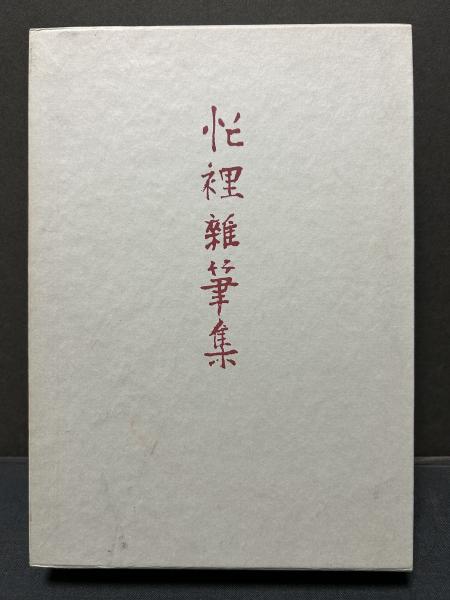 忙裡雜筆集